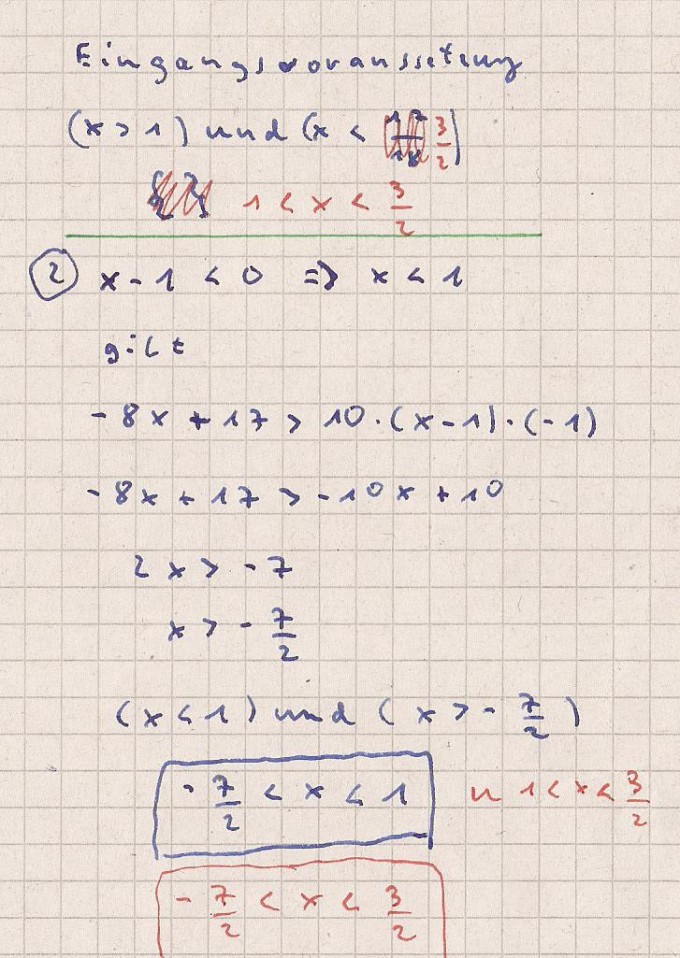 Eingangsvoraussetzung
(x > 1) und (x < 3/2)
1 < x < 3/2
② x - 1 < 0 => x < 1
gilt
- 8x + 17 > 10 · (x - 1) · (-1)
- 8x + 17 > -10x + 10
2x > - 7
x > - 7/2
(x < 1) und (x > - 7/2)
- 7/2 < x < 1 u 1 < x < 3/2
- 7/2 < x < 3/2